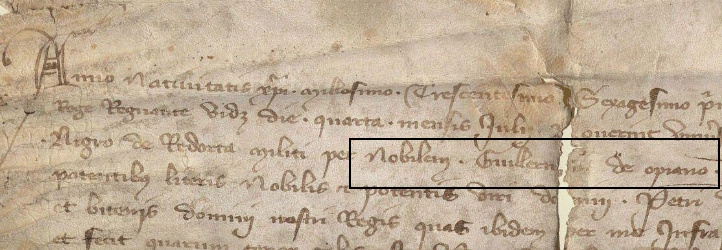 Anno Nativitatis xpi. millesimo. Trescentesimo Sexagesimo
Rege Regnante die. quarta. mensis Julii noverint
Nigro de Redorta militi per Nobilem. Guillermum de opiano.
patentibus literis Nobilis et potentis viri domini. Petri
et bitenis domini nostri Regis quas ibidem per me Infra
et fecit quarum tenor